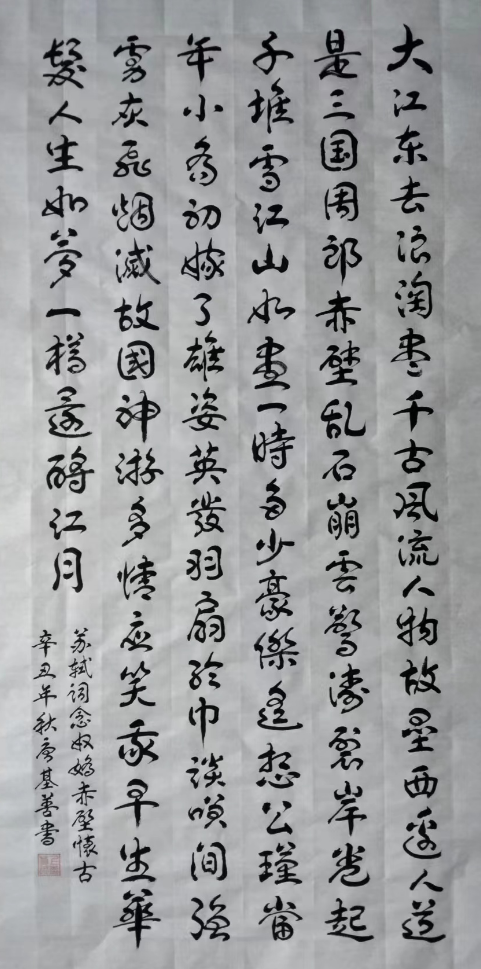 大江东去浪淘尽千古风流人物故垒西边人道
是三国周郎赤壁乱石崩雲驚涛裂岸卷起
千堆雪江山如畫一時多少豪傑遥想公瑾當
年小喬初嫁了雄姿英發羽扇纶巾談咲间强
虏灰飛烟滅故國神游多情应笑我早生華
髮人生如夢一樽還酹江月
苏轼词念奴嬌赤壁懷古
辛丑年秋唐基善書